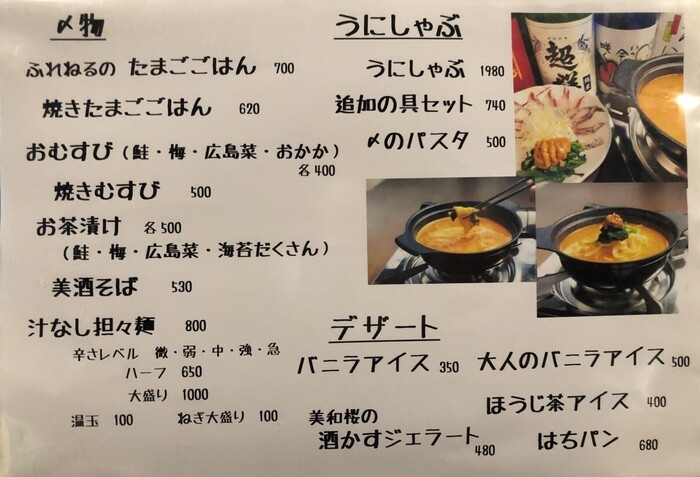 〆物
ふれねるの たまごごはん 700
焼きたまごごはん 620
おむすび（鮭・梅・広島菜・おかか）
各400
焼きむすび 500
お茶漬け 各500
（鮭・梅・広島菜・海苔だくさん）
美酒そば 530
汁なし担々麺 800
辛さレベル 微・弱・中・強・急
ハーフ 650
大盛り 1000
温玉 100 ねぎ大盛り 100
うにしゃぶ
うにしゃぶ 1980
追加の具セット 740
〆のパスタ 500
超群
デザート
バニラアイス 350 大人のバニラアイス 500
ほうじ茶アイス 400
美和桜の
酒かすジェラート 480 はちパン 680